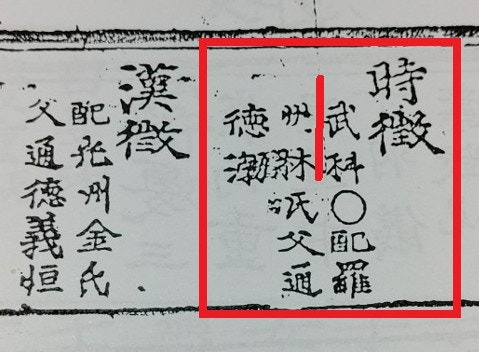 時徵
武科○配羅
州林氏父通
德
漢徵
配州金氏
父通德義恒